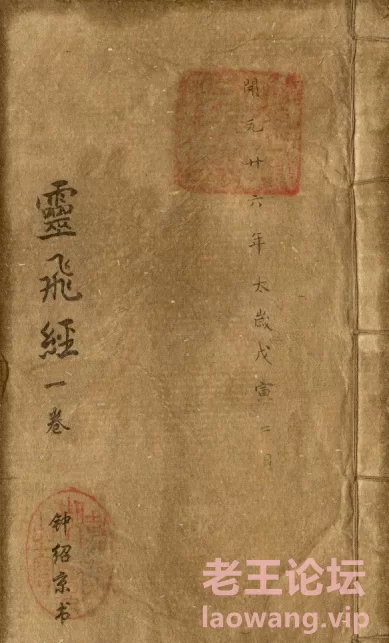 開元廿六年太歲戊寅二月
靈飛經一卷
钟绍京书
老王论坛
laowang.vip